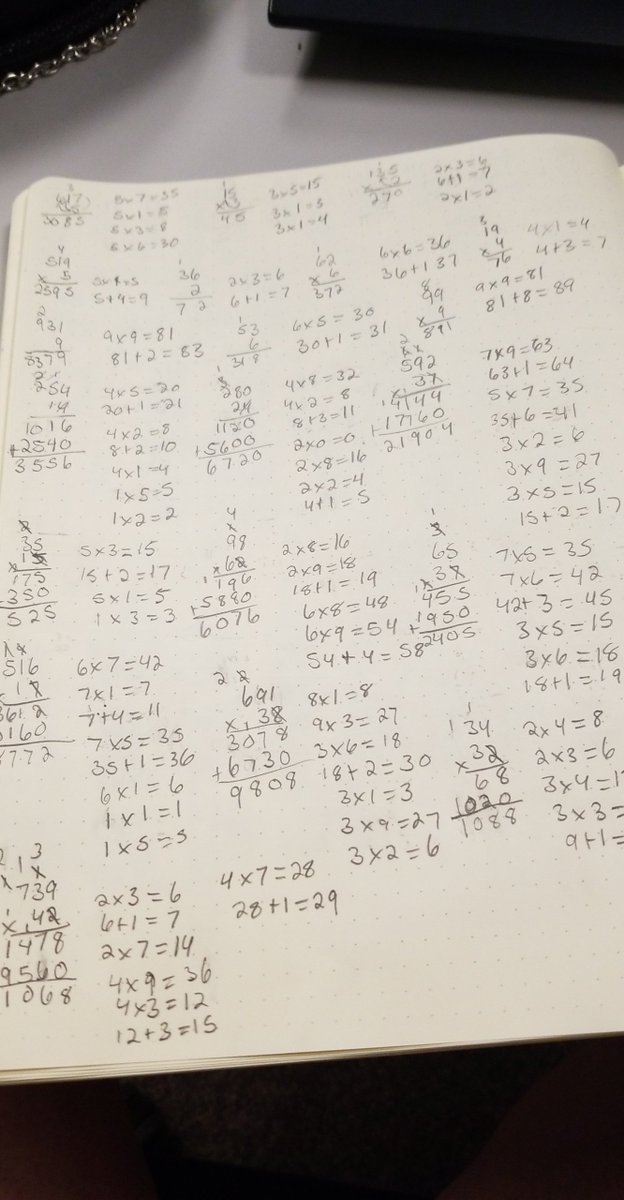 3
617
3085
5x7=35
5x1=5
5x3=8
5x6=30
1
15
x 3
45
3x5=15
3x1=3
3x1=4
135
x 2
270
2x3=6
6+1=7
2x1=2
4
519
x 5
2595
5+4=9
1
36
2
72
2x3=6
6+1=7
1
62
x 6
372
6x6=36
36+1 37
3
19
x 4
76
4x1=4
4+3=7
2
931
9
8379
9x9=81
81+2=83
1
53
6
318
6x5=30
30+1=31
8
99
x 9
891
9x9=81
81+8=89
254
14
1016
+2540
3556
4x5=20
20+1=21
4x2=8
8+2=10
4x1=4
1x5=5
1x2=2
280
24
1120
+5600
6720
4x8=32
4x2=8
8+3=11
2x0=0
2x8=16
2x2=4
4+1=5
592
x 37
4144
+17760
21904
7x9=63
63+1=64
5x7=35
35+6=41
3x2=6
3x9=27
3x5=15
15+2=17
35
x 15
175
350
525
5x3=15
15+2=17
5x1=5
1x3=3
4
98
x 62
196
+5880
6076
2x8=16
2x9=18
18+1=19
6x8=48
6x9=54
54+4=58
1
65
x 37
455
+1950
2405
7x5=35
7x6=42
42+3=45
3x5=15
3x6=18
18+1=19
516
3612
5160
8772
6x7=42
7x1=7
7+4=11
7x5=35
35+1=36
6x1=6
1x1=1
1x5=5
691
x 38
3078
+6730
9808
8x1=8
9x3=27
3x6=18
18+2=30
3x1=3
3x9=27
3x2=6
1
134
x 32
68
1020
1088
2x4=8
2x3=6
3x4=1
3x3=
9+1=
739
x 42
1478
9560
1068
2x3=6
6+1=7
2x7=14
4x9=36
4x3=12
12+3=15
4x7=28
28+1=29